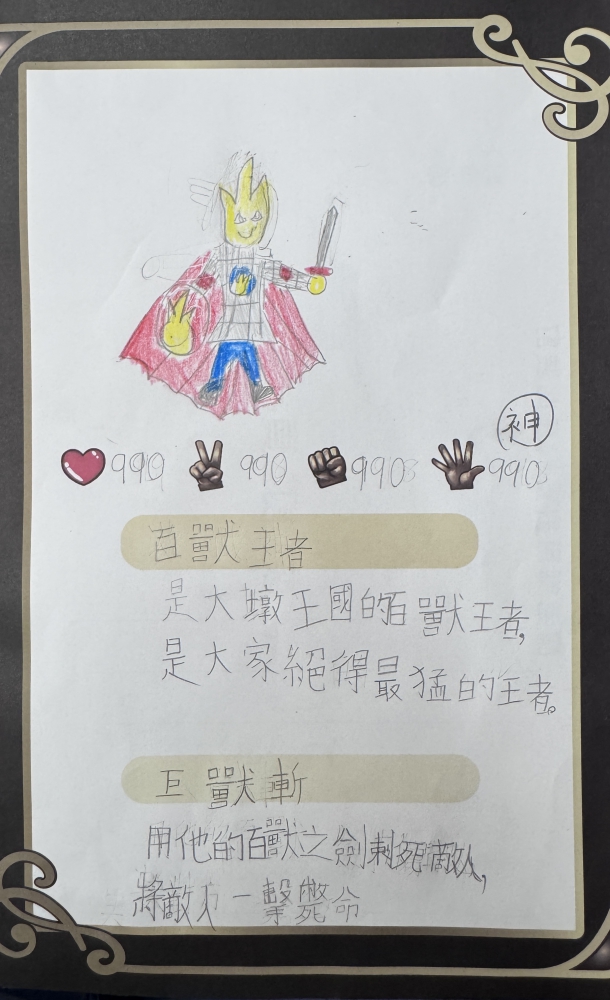 神
990 990 990 990
百獸王者
是大墩王國的百獸王者,
是大家絕得最猛的王者。
巨獸斬
用他的百獸之劍刺死敵人,
將敵人一擊斃命